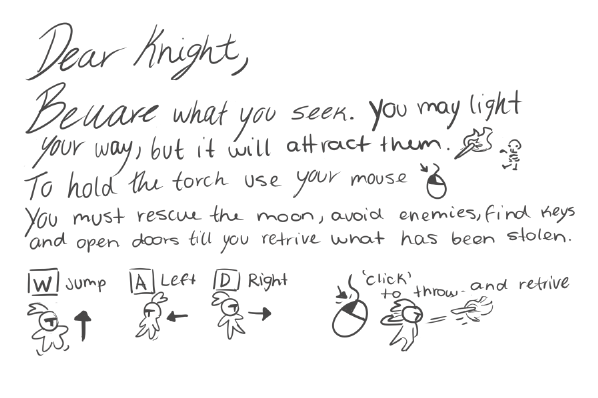 Dear Knight,
Beware what you seek. You may light
your way, but it will attract them.
To hold the torch use your mouse
You must rescue the moon, avoid enemies, find keys
and open doors till you retrive what has been stolen.
W Jump A Left D Right 'click' to throw and retrive